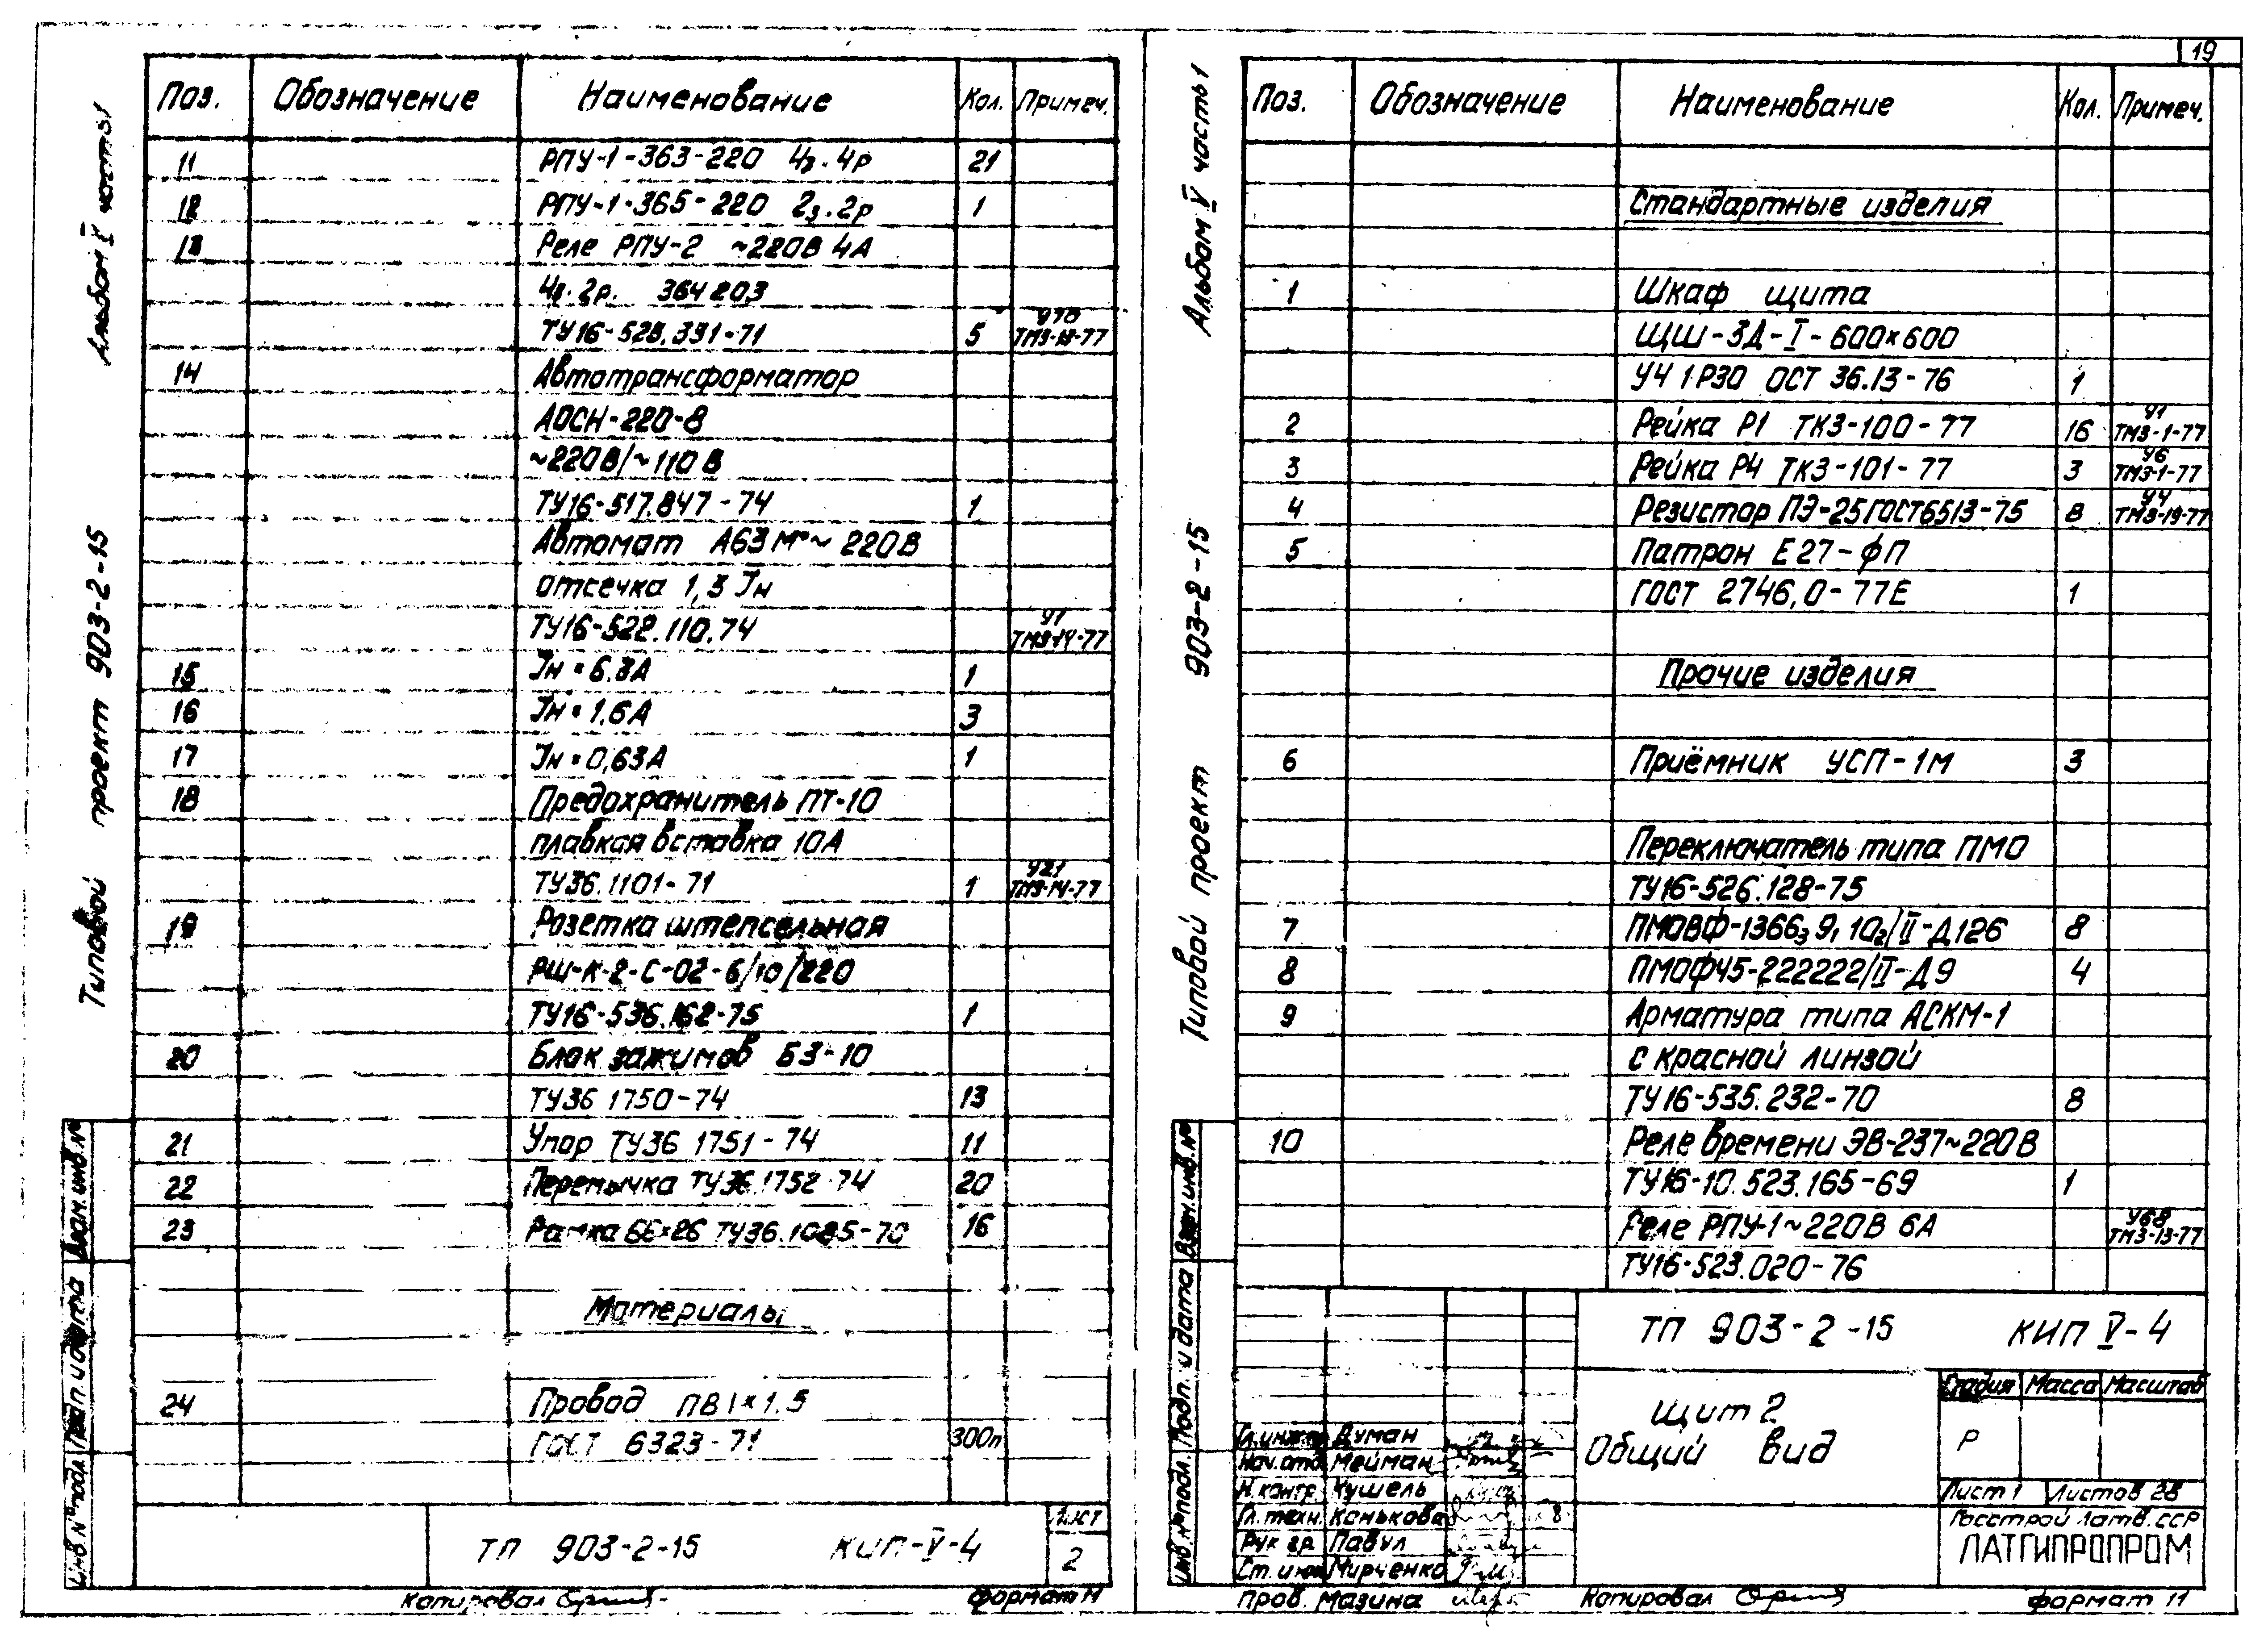 Поз. Обозначение Наименование Кол. Примеч.
11 РПУ-1-363-220 4з.4р 21
12 РПУ-1-365-220 2з.2р 1
13 Реле РПУ-2 ~220В 4А
4з.2р. 364203
У70
ТУ16-523.331-71 5 ТМ3-13-77
14 Автотрансформатор
АОСН-220-8
~220В/~110В
ТУ16-517.847-74 1
Автомат А63М ~ 220В
отсечка 1,3 Iн
У1
ТУ16-522.110.74 ТМ3-14-77
15 Iн=6.3А 1
16 Iн=1.6А 3
17 Iн=0,63А 1
18 Предохранитель ПТ-10
плавкая вставка 10А
У21
ТУ36.1101-71 1 ТМ3-14-77
19 Розетка штепсельная
РШ-К-2-С-02-6/10/220
ТУ16-536.162-75 1
20 Блок зажимов БЗ-10
ТУ36 1750-74 13
21 Упор ТУ36 1751-74 11
22 Перемычка ТУ36.1752-74 20
23 Рамка 66×26 ТУ36.1085-70 16
Материалы
24 Провод ПВ 1×1.5
ГОСТ 6323-71 300м
ТП 903-2-15 КИП-V-4
Лист
2
Копировал
формат 11
Альбом V часть 1
Типовой проект 903-2-15
Взам. инв. №
Подп. и дата
Инв. № подл.
19
Поз. Обозначение Наименование Кол. Примеч.
Стандартные изделия
1 Шкаф щита
ЩШ-ЗД-I-600×600
У4 1Р30 ОСТ 36.13-76 1
У1
2 Рейка Р1 ТК3-100-77 16 ТМ3-1-77
У6
3 Рейка Р4 ТК3-101-77 3 ТМ3-1-77
У4
4 Резистор ПЭ-25 ГОСТ6513-75 8 ТМ3-19-77
5 Патрон Е27-ФП
ГОСТ 2746,0-77Е 1
Прочие изделия
6 Приёмник УСП-1М 3
Переключатель типа ПМО
ТУ16-526.128-75
7 ПМОВФ-1366₃9₁10₂/II-Д126 8
8 ПМОФ45-222222/II-Д9 4
9 Арматура типа АСКМ-1
с красной линзой
ТУ16-535.232-70 8
10 Реле времени ЭВ-237~220В
ТУ16-10.523.165-69 1
У68
Реле РПУ-1~220В 6А ТМ3-13-77
ТУ16-523.020-76
ТП 903-2-15 КИП V-4
Щит 2
Общий вид
Стадия Масса Масштаб
Р
Лист 1 Листов 28
Госстрой Латв.ССР
ЛАТГИПРОПРОМ
Гл.инж.пр Думан
Нач.отд. Мейман
Н.контр Кушель
Гл.техн. Конькова
Рук гр. Павул
Ст.инж Мирченко
Пров. Мазина
Копировал
формат 11
Альбом V часть 1
Типовой проект 903-2-15
Взам. инв. №
Подп. и дата
Инв. № подл.